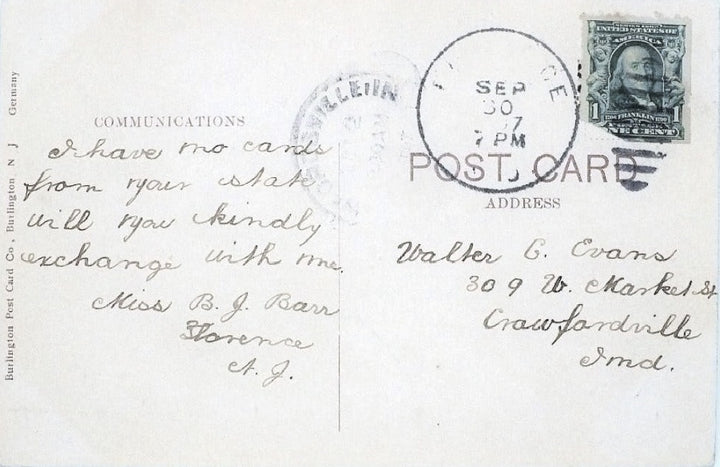 COMMUNICATIONS
I have no cards
from your state
will you kindly
exchange with me.
Miss B. J. Barr
Florence
N. J.
Burlington Post Card Co, Burlington, N J Germany
SVILLE, IN
SEP
30
7 PM
SERIES 1902
UNITED STATES OF
AMERICA
1 FRANKLIN 1
ONE CENT
POST CARD
ADDRESS
Walter C. Evans
309 W. Market St
Crawfordville
Ind.